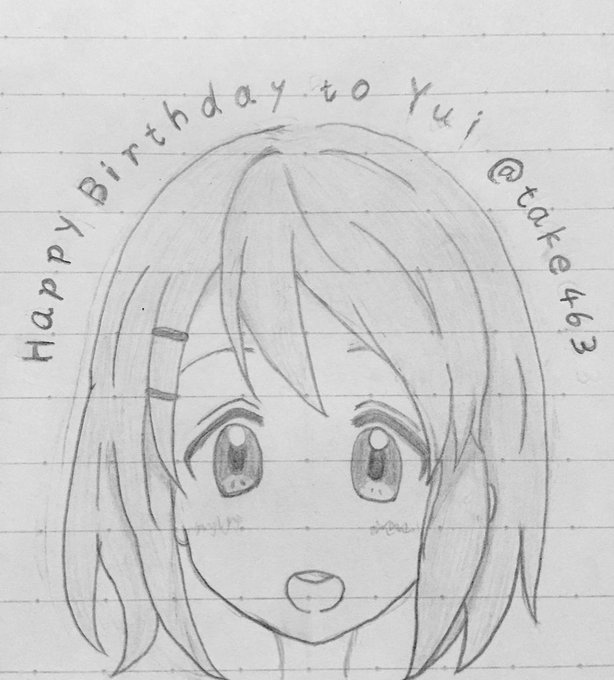 Happy Birthday to Yui @take463